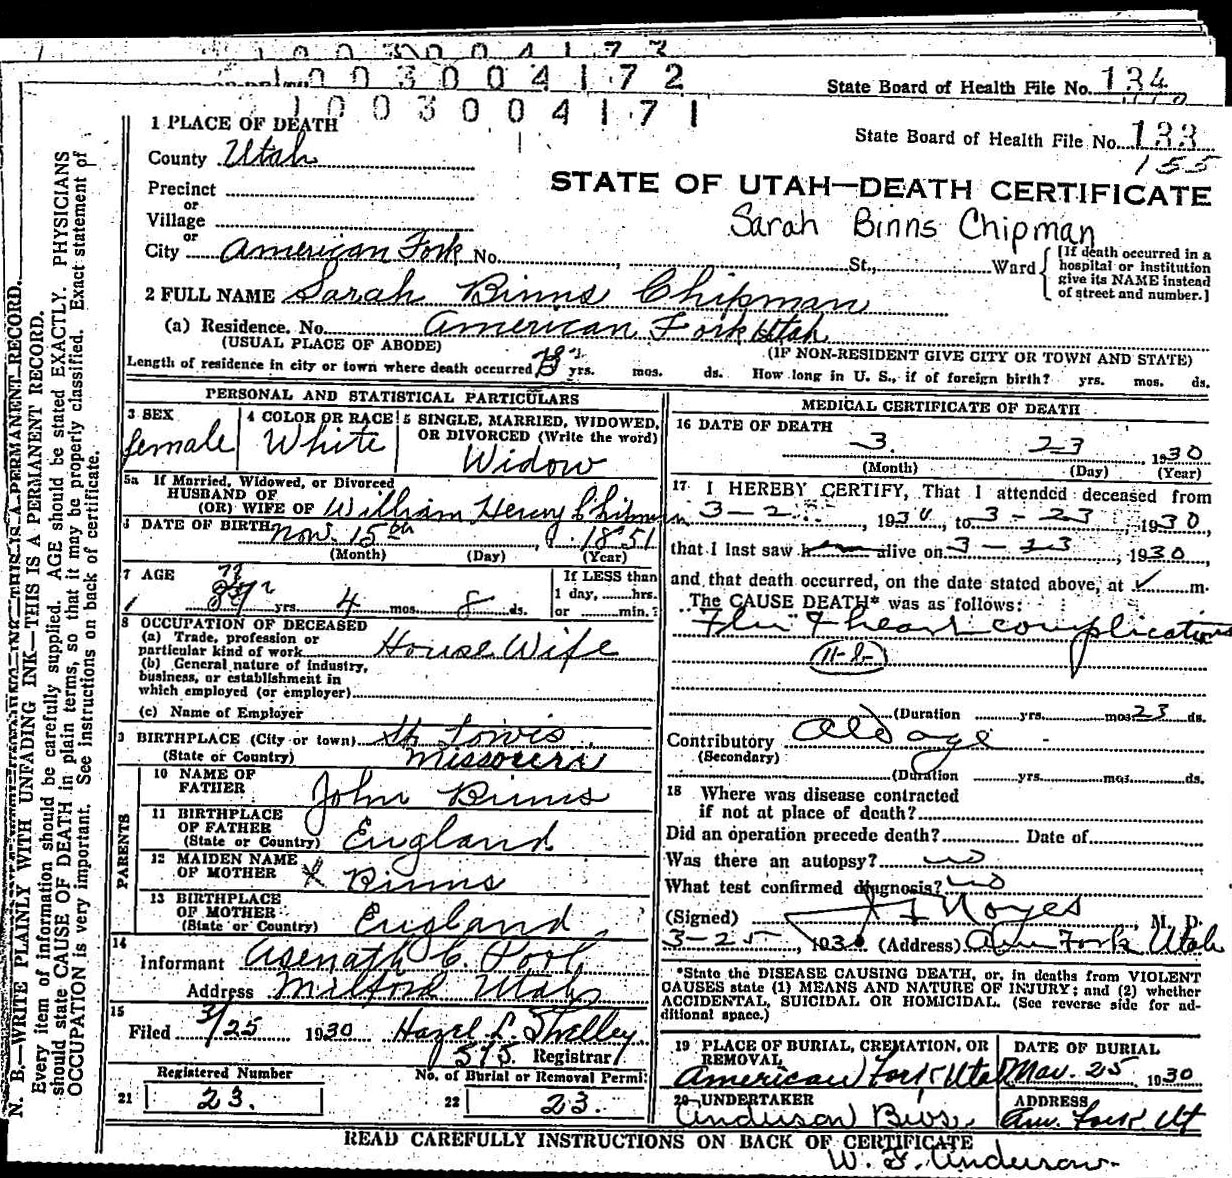 1003004173
1003004172
State Board of Health File No. 134
1003004171
State Board of Health File No. 133
155
1 PLACE OF DEATH
County Utah
STATE OF UTAH—DEATH CERTIFICATE
Precinct
or
Village
Sarah Binns Chipman
or
City American Fork No. , St., Ward
[If death occurred in a hospital or institution give its NAME instead of street and number.]
2 FULL NAME Sarah Binns Chipman
(a) Residence. No. American Fork Utah
(USUAL PLACE OF ABODE) (IF NON-RESIDENT GIVE CITY OR TOWN AND STATE)
Length of residence in city or town where death occurred yrs. mos. ds. How long in U. S., if of foreign birth? yrs. mos. ds.
PERSONAL AND STATISTICAL PARTICULARS
3 SEX
female
4 COLOR OR RACE
White
5 SINGLE, MARRIED, WIDOWED,
OR DIVORCED (Write the word)
Widow
5a If Married, Widowed, or Divorced
HUSBAND OF
(OR) WIFE OF William Henry Chipman
6 DATE OF BIRTH Nov. 15th 1851
(Month) (Day) (Year)
7 AGE
yrs. 4 mos. 8 ds.
If LESS than
1 day, hrs.
or min.?
8 OCCUPATION OF DECEASED
(a) Trade, profession or
particular kind of work House Wife
(b) General nature of industry,
business, or establishment in
which employed (or employer)
(c) Name of Employer
9 BIRTHPLACE (City or town) St Lowis
(State or Country) Missouri
PARENTS
10 NAME OF
FATHER John Binns
11 BIRTHPLACE
OF FATHER
(State or Country) England
12 MAIDEN NAME
OF MOTHER Binns
13 BIRTHPLACE
OF MOTHER
(State or Country) England
14
Informant Asenath C. Pool
Address Milford Utah
15
Filed 3/25 1930 Hazel L. Shelley
515 Registrar
Registered Number
21 23.
No. of Burial or Removal Permit
22 23.
MEDICAL CERTIFICATE OF DEATH
16 DATE OF DEATH
3 23 1930
(Month) (Day) (Year)
17 I HEREBY CERTIFY, That I attended deceased from
3-2 , 1930, to 3-23, 1930,
that I last saw h alive on 3-23, 1930,
and that death occurred, on the date stated above, at m.
The CAUSE DEATH* was as follows:
Flu & heart complications
(11-a)
(Duration yrs. mos. 23 ds.
Contributory Old age
(Secondary)
(Duration yrs. mos. ds.
18 Where was disease contracted
if not at place of death?
Did an operation precede death? Date of
Was there an autopsy? no
What test confirmed diagnosis? no
(Signed) Noyes, M. D.
3-25, 1930 (Address) Am Fork Utah
*State the DISEASE CAUSING DEATH, or, in deaths from VIOLENT
CAUSES state (1) MEANS AND NATURE OF INJURY; and (2) whether
ACCIDENTAL, SUICIDAL OR HOMICIDAL. (See reverse side for ad-
ditional space.)
19 PLACE OF BURIAL, CREMATION, OR
REMOVAL
American Fork Utah
DATE OF BURIAL
Mar. 25 1930
20 UNDERTAKER
Anderson Bros.
ADDRESS
Am. Fork Ut
READ CAREFULLY INSTRUCTIONS ON BACK OF CERTIFICATE
W. F. Anderson
N. B.—WRITE PLAINLY WITH UNFADING INK—THIS IS A PERMANENT RECORD.
Every item of information should be carefully supplied. AGE should be stated EXACTLY. PHYSICIANS
should state CAUSE OF DEATH in plain terms, so that it may be properly classified. Exact statement of
OCCUPATION is very important. See instructions on back of certificate.